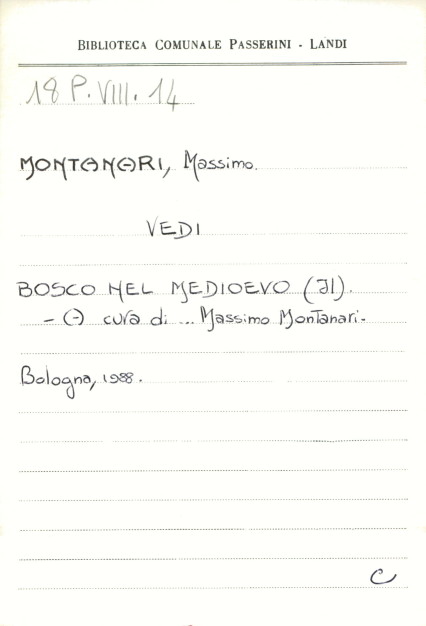 BIBLIOTECA COMUNALE PASSERINI - LANDI
18 P. VIII. 14
MONTANARI, Massimo.
VEDI
BOSCO NEL MEDIOEVO (Il).
- A cura di ... Massimo Montanari -
Bologna, 1988.
C